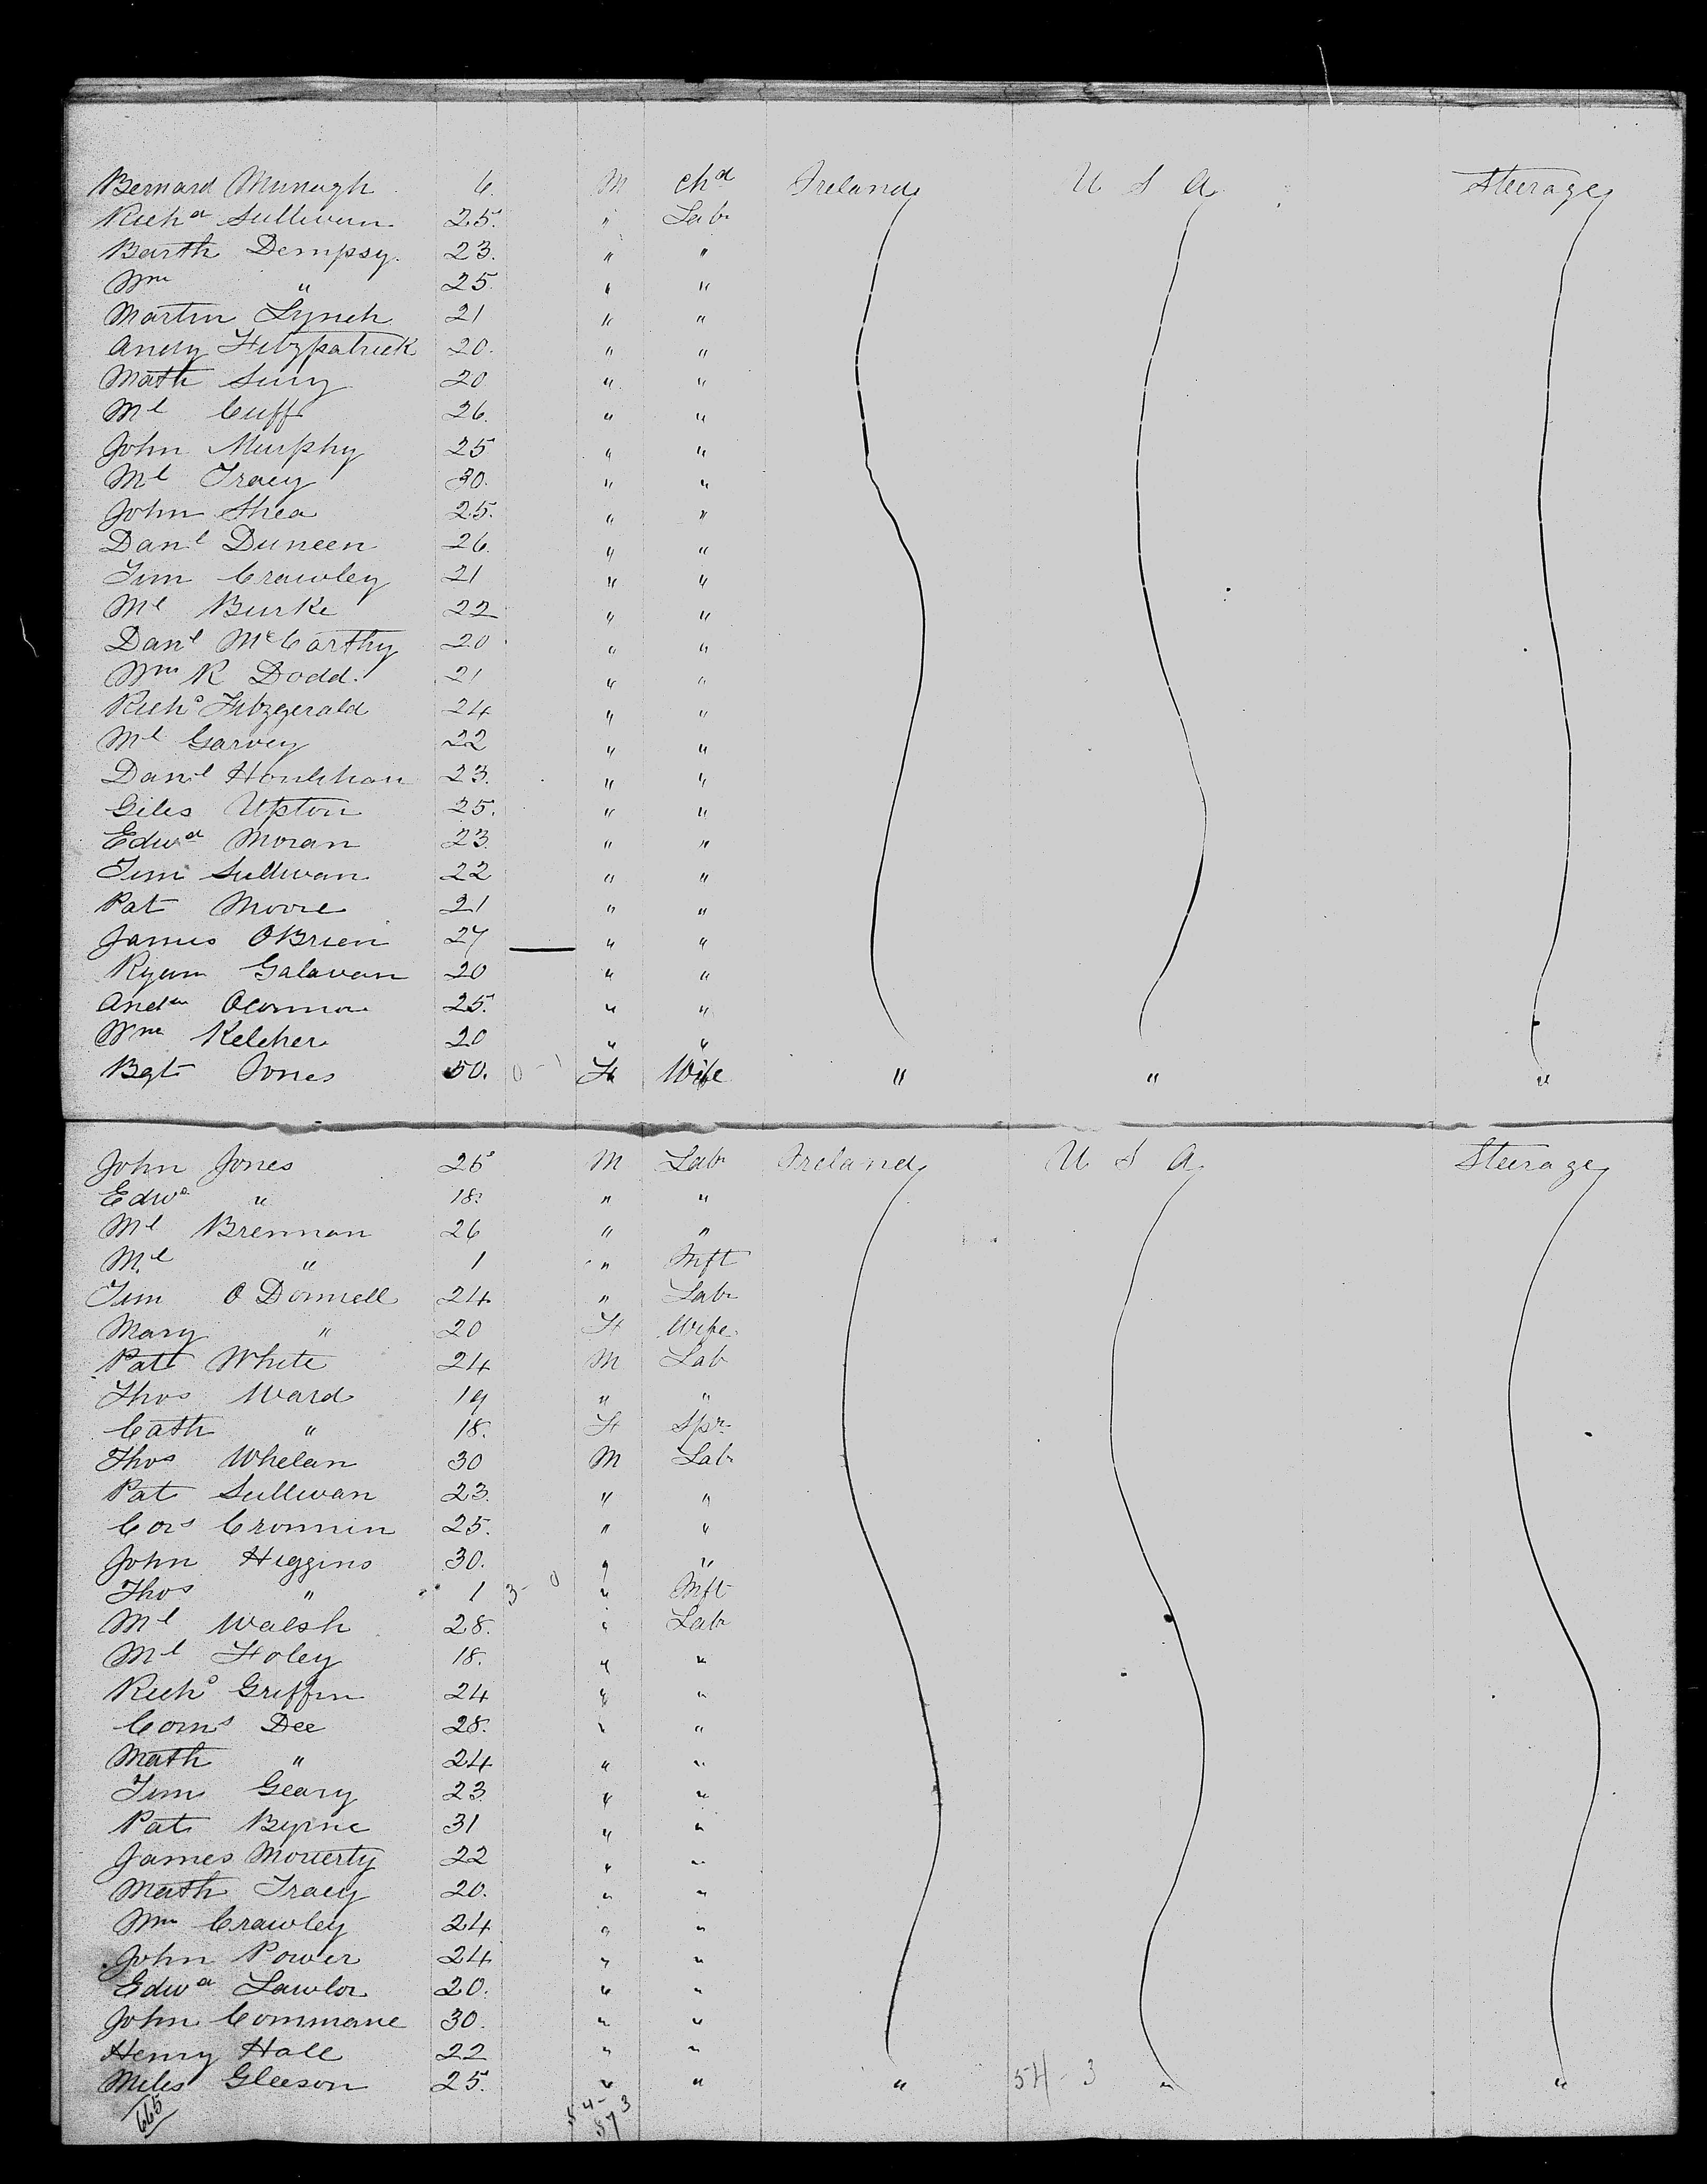 Bernard Munagh 6 M chd Ireland U S A Steerage
Richd Sullivan 25. " Lab
Barth Dempsy. 23. " "
Wm " 25. " "
Martin Lynch 21 " "
Andy Fitzpatrick 20. " "
Math 20 " "
Ml Cuff 26. " "
John Murphy 25 " "
Ml Tracy 30. " "
John Shea 25. " "
Danl Duneen 26. " "
Tim Crawley 21 " "
Ml Burke 22 " "
Danl McCarthy 20 " "
Wm R Dodd. 21 " "
Richd Fitzgerald 24 " "
Ml Garvey 22 " "
Danl Houlihan 23. " "
Giles Upton 25. " "
Edwd Moran 23. " "
Tim Sullivan 22 " "
Pat Moore 21 " "
James OBrien 27 — " "
Ryan Galavan 20 " "
Andw Oconnor 25. " "
Wm Keleher 20 " "
Bgt Jones 50. 0 - 1 F Wife " " "
John Jones 25 M Lab Ireland U S A Steerage
Edwd " 18. " "
Ml Brennan 26 " "
Ml " 1 " Inft
Tim O Donnell 24 " Lab
Mary " 20 F Wife
Pat White 24 M Lab
Thos Ward 19 " "
Cath " 18. F Spr
Thos Whelan 30 M Lab
Pat Sullivan 23. " "
Cors Cronnin 25. " "
John Higgins 30. " "
Thos " 1 3 - 0 " Inft
Ml Walsh 28. " Lab
Ml Foley 18. " "
Richd Griffin 24 " "
Corns Dee 28. " "
Math " 24 " "
Tim Geary 23 " "
Pat Byrne 31 " "
James Mouerty 22 " "
Math Tracy 20. " "
Wm Crawley 24 " "
John Power 24 " "
Edwd Lawlor 20. " "
John Commane 30. " "
Henry Hall 22 " "
Miles Gleeson 25. " " " 54 - 3 " "
665 54 - 3
57